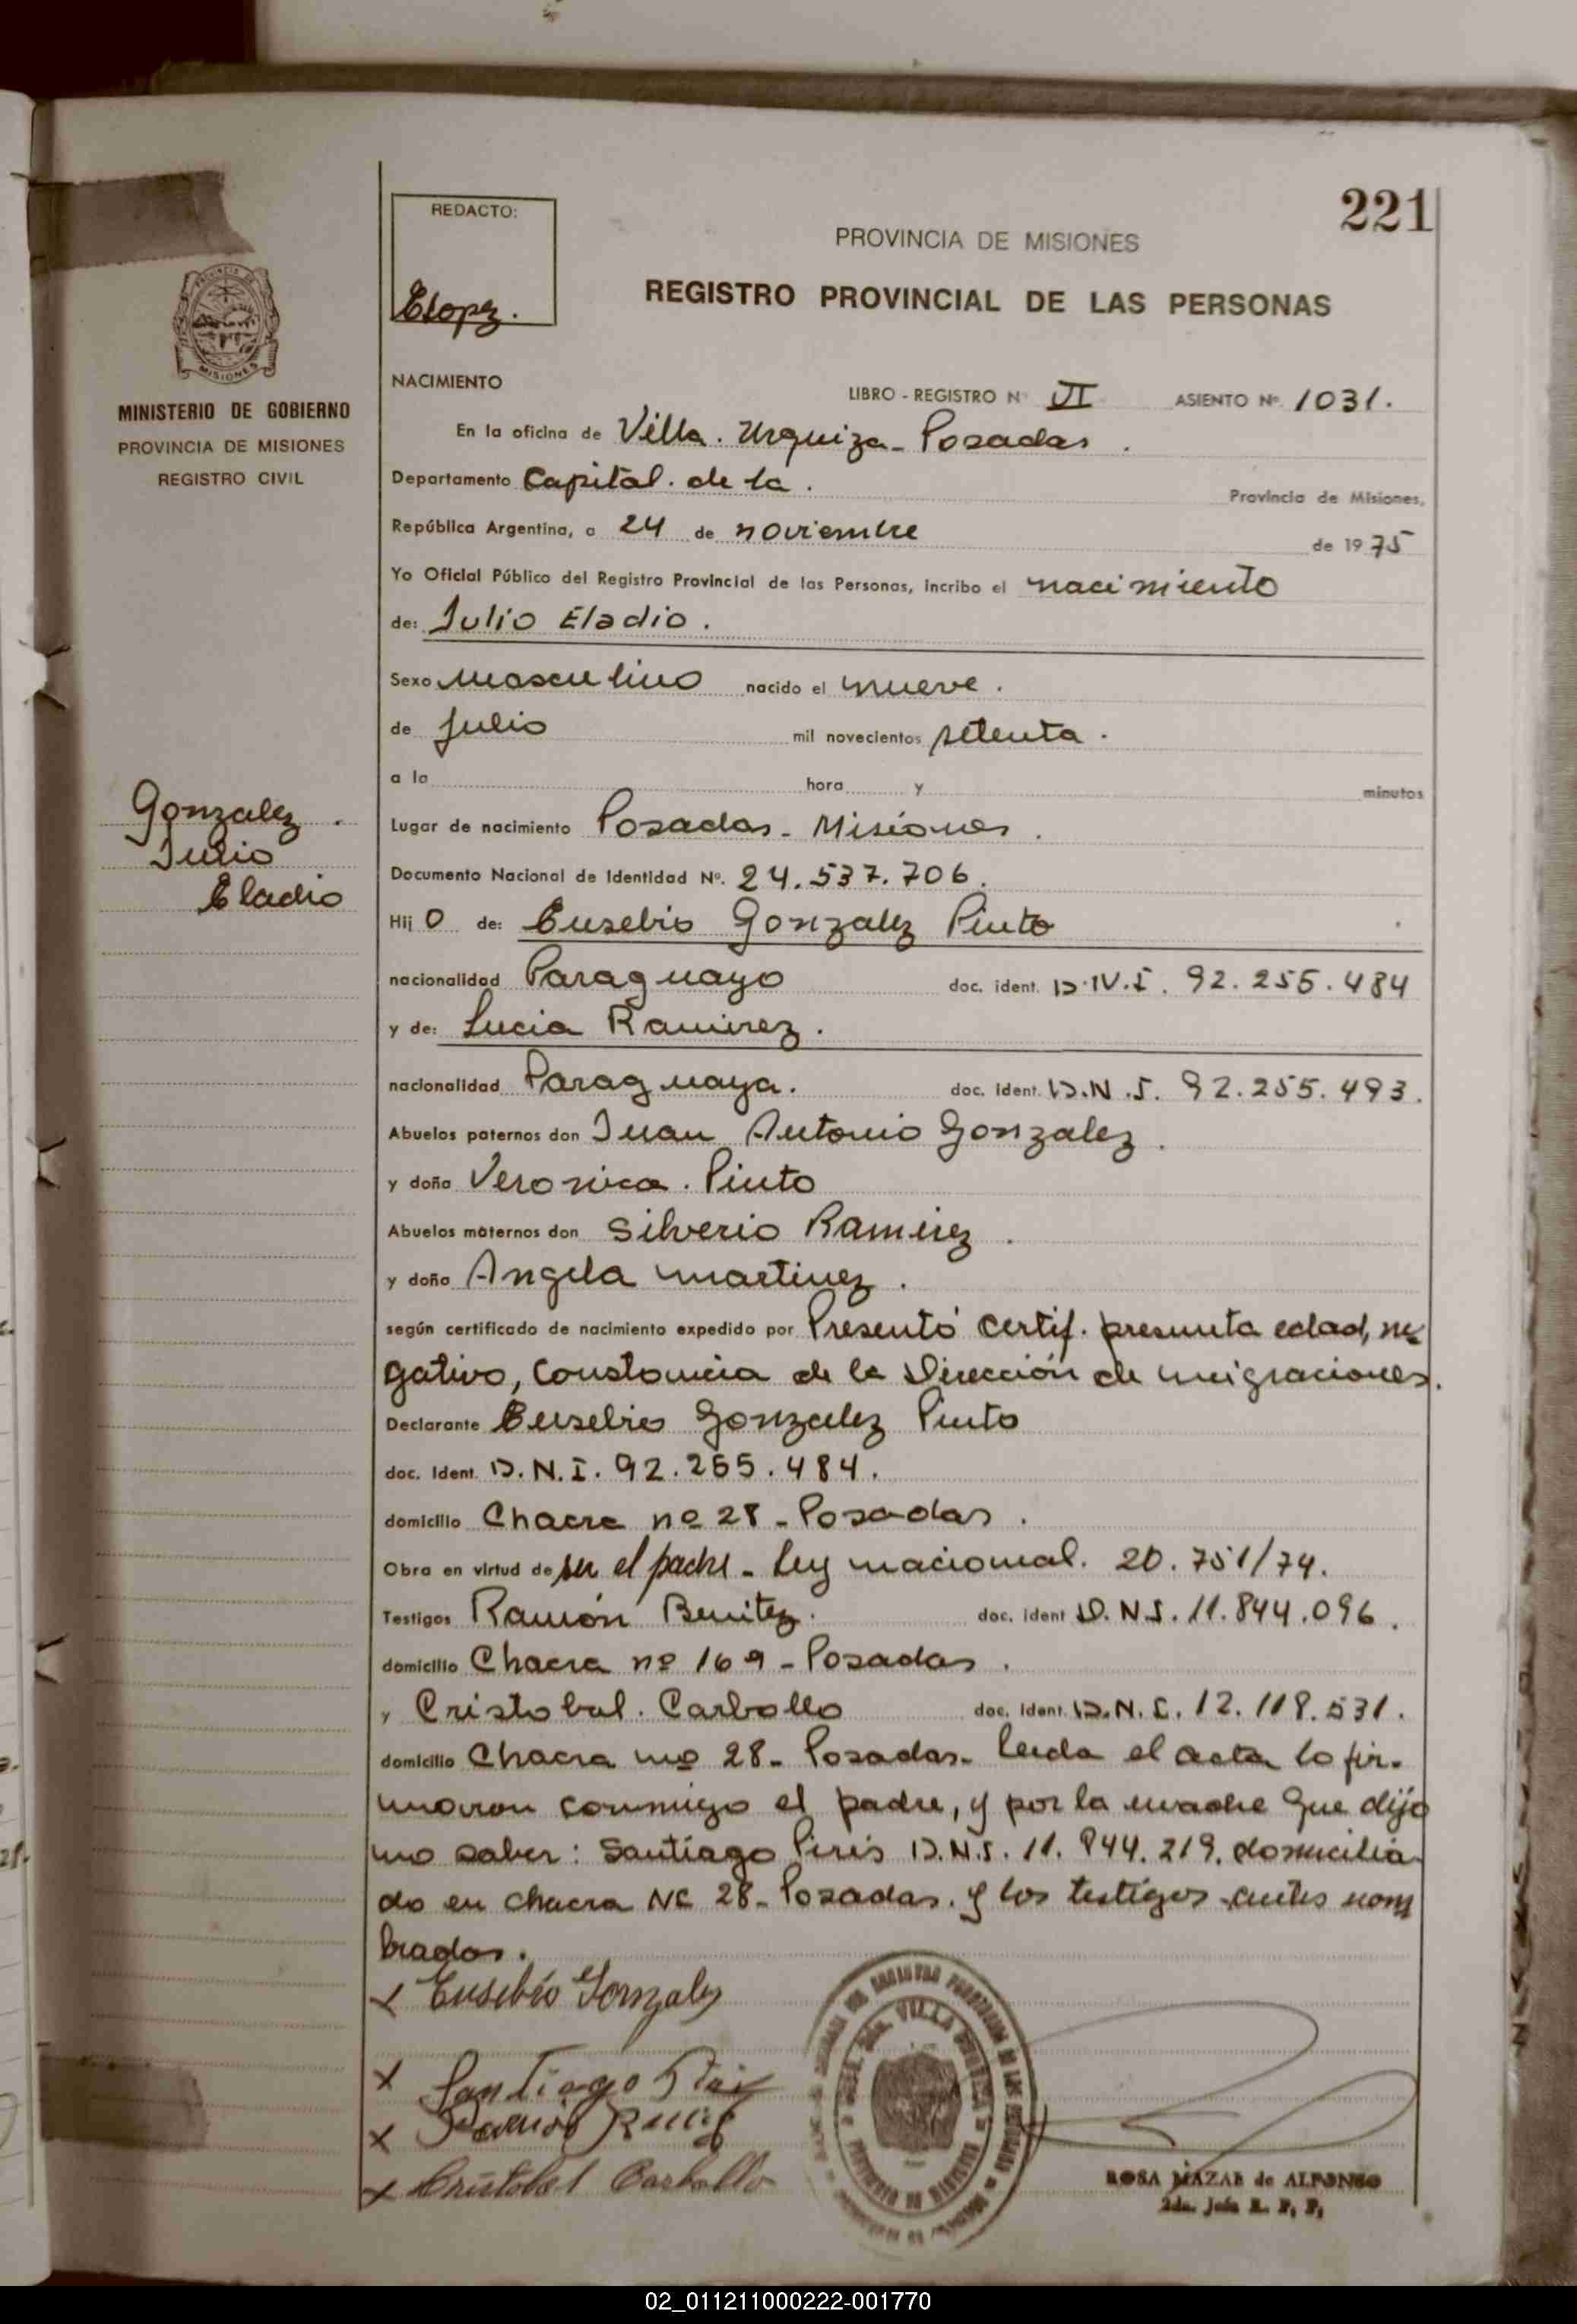 221
REDACTO:
ELopez.
PROVINCIA DE MISIONES
REGISTRO PROVINCIAL DE LAS PERSONAS
MISIONES
MINISTERIO DE GOBIERNO
PROVINCIA DE MISIONES
REGISTRO CIVIL
Gonzalez.
Julio
Eladio
NACIMIENTO
LIBRO - REGISTRO Nº VI ASIENTO Nº. 1031.
En la oficina de Villa. Urquiza - Posadas.
Departamento Capital. de la. Provincia de Misiones,
República Argentina, a 24 de noviembre de 1975
Yo Oficial Público del Registro Provincial de las Personas, incribo el nacimiento
de: Julio Eladio.
Sexo Masculino nacido el nueve.
de Julio mil novecientos setenta.
a la hora y minutos
Lugar de nacimiento Posadas - Misiones.
Documento Nacional de Identidad Nº. 24.537.706.
Hij o de: Eusebio Gonzalez Pinto
nacionalidad Paraguayo doc. ident. D.N.I. 92.255.484
y de: Lucia Ramirez.
nacionalidad Paraguaya. doc. ident. D.N.I. 92.255.493.
Abuelos paternos don Juan Antonio Gonzalez.
y doña Veronica. Pinto
Abuelos maternos don Silverio Ramirez.
y doña Angela Martinez.
según certificado de nacimiento expedido por Presentó certif. presunta edad, ne
gativo, Constancia de la Dirección de migraciones.
Declarante Eusebio Gonzalez Pinto
doc. Ident. D.N.I. 92.255.484.
domicilio Chacra nº 28 - Posadas.
Obra en virtud de ser el padre - Ley nacional. 20.751/74.
Testigos Ramón Benitez. doc. ident D.N.I. 11.844.096.
domicilio Chacra nº 169 - Posadas.
y Cristobal. Carballo doc. Ident. D.N.I. 12.118.531.
domicilio Chacra nº 28 - Posadas - Leida el acta la fir-
maron conmigo el padre, y por la madre que dijo
no saber: Santiago Piris D.N.I. 11.844.219. domicilia-
do en chacra Nº 28 - Posadas. y los testigos antes nom
brados.
x Eusebio Gonzalez
x Santiago
x Ramon
x Cristobal Carballo
ROSA MAZAR de ALFONSO
2da. Jefa R. P. P.
02_011211000222-001770